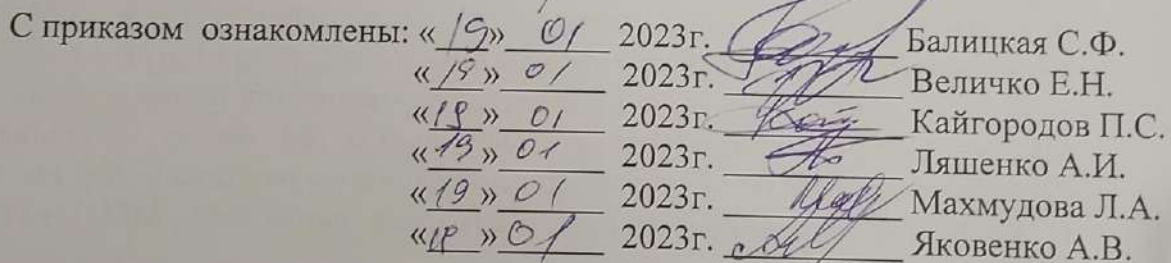 С приказом ознакомлены: «19» 01 2023г. Балицкая С.Ф.
«19» 01 2023г. Величко Е.Н.
«19» 01 2023г. Кайгородов П.С.
«19» 01 2023г. Ляшенко А.И.
«19» 01 2023г. Махмудова Л.А.
« » 01 2023г. Яковенко А.В.